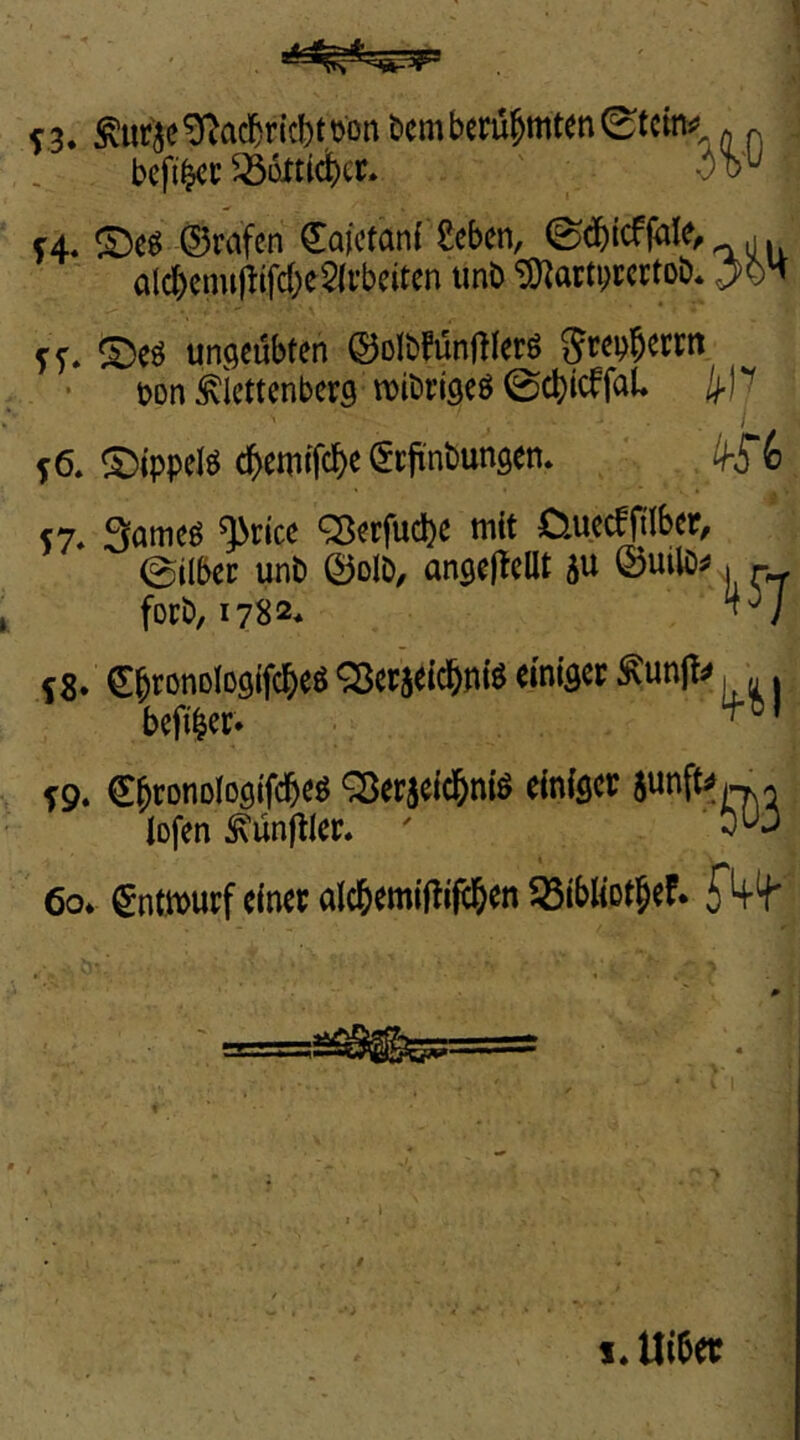 53. Kurze Nachricht von dem berühmten Stein- 380
besitzer Bötticher.
54. Des Grafen Cajetani Leben, Schicksale, 384
alchemystische Arbeiten und Martyrertod.
55. Des ungeübten Goldkünstlers Freyherrn
von Klettenberg widriges Schicksal. 417
56. Dippels chemische Erfindungen. 456
57. James Price Versuche mit Quecksilber,
Silber und Gold, angestellt zu Guild-
ford, 1782. 457
58. Chronologisches Verzeichnis einiger Kunst- 481
besitzer.
59. Chronologisches Verzeichnis einiger zunft- 503
losen Künstler.
60. Entwurf einer alchemistischen Bibliothek. 544
1. Uiber